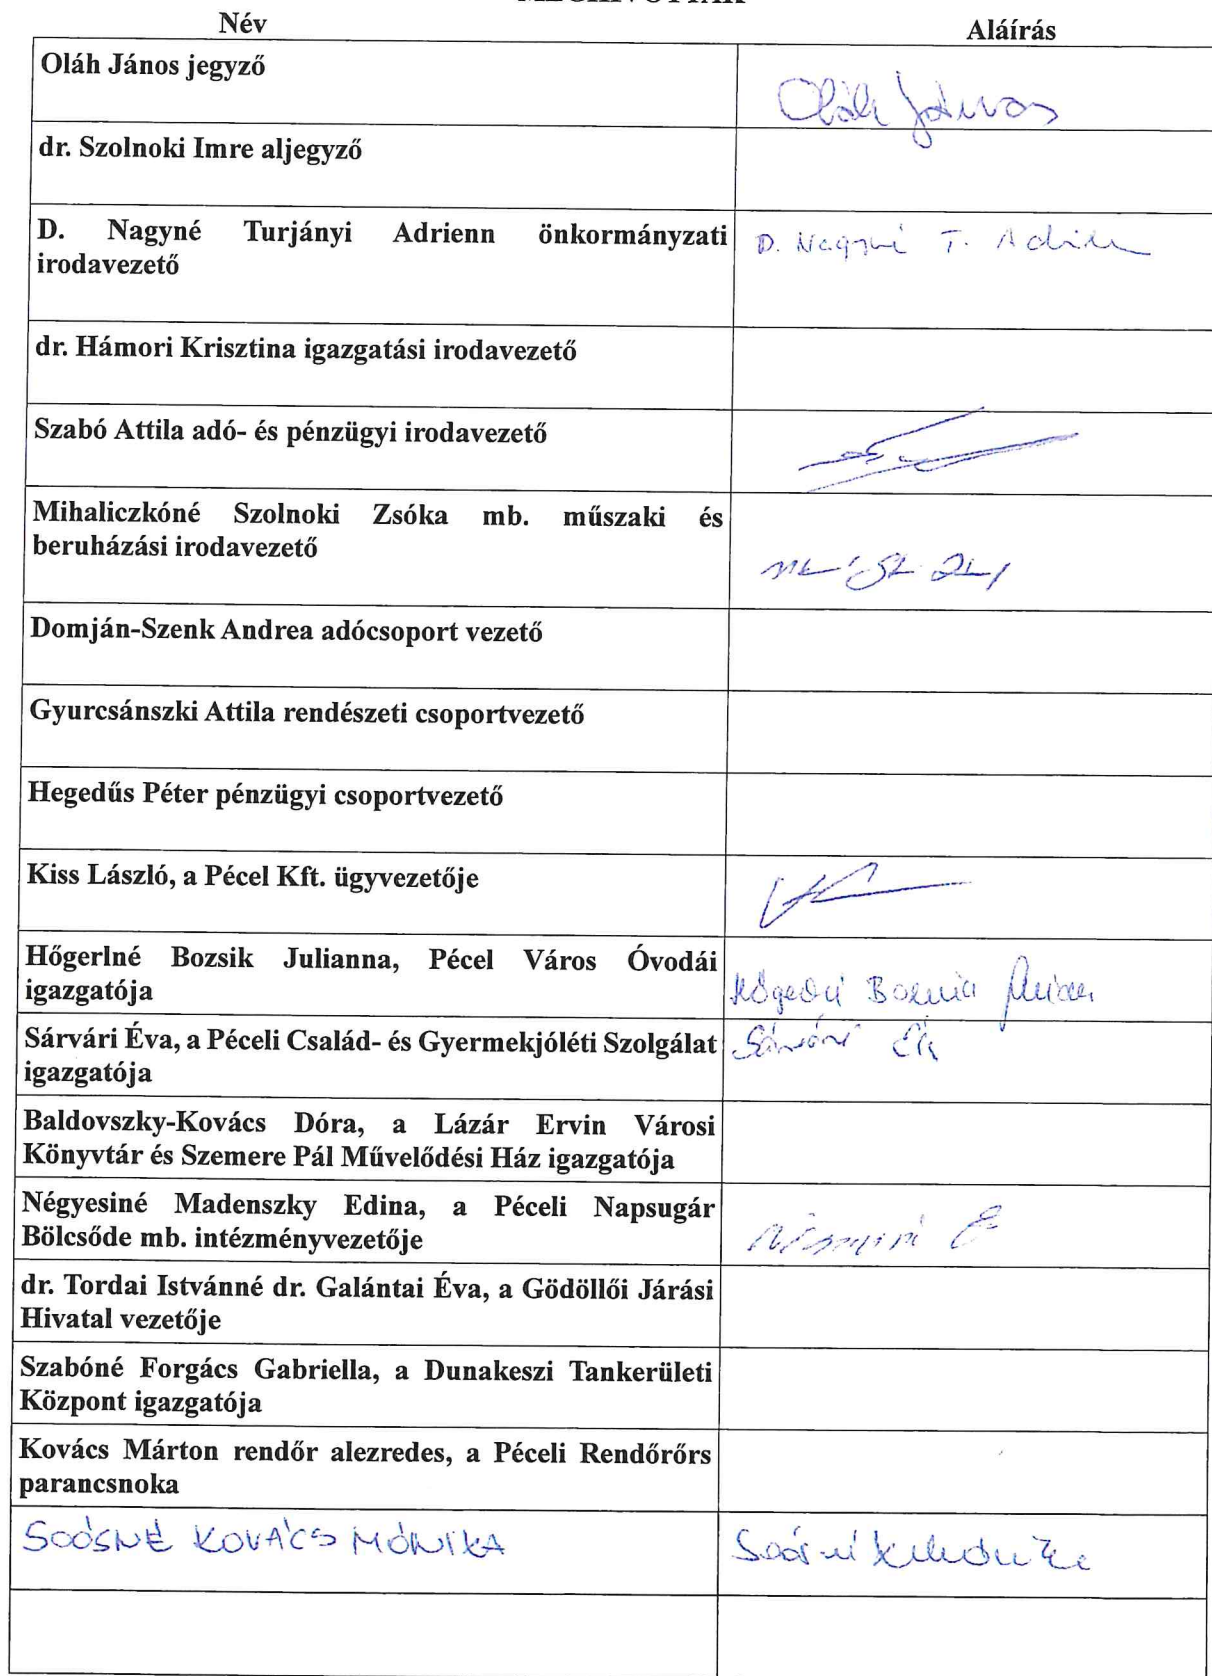 Név Aláírás
Oláh János jegyző Oláh János
dr. Szolnoki Imre aljegyző
D. Nagyné Turjányi Adrienn önkormányzati D. Nagyné T. Adrienn
irodavezető
dr. Hámori Krisztina igazgatási irodavezető
Szabó Attila adó- és pénzügyi irodavezető
Mihaliczkóné Szolnoki Zsóka mb. műszaki és
beruházási irodavezető
Domján-Szenk Andrea adócsoport vezető
Gyurcsánszki Attila rendészeti csoportvezető
Hegedűs Péter pénzügyi csoportvezető
Kiss László, a Pécel Kft. ügyvezetője
Hőgerlné Bozsik Julianna, Pécel Város Óvodái
igazgatója
Sárvári Éva, a Péceli Család- és Gyermekjóléti Szolgálat Sárvári Éva
igazgatója
Baldovszky-Kovács Dóra, a Lázár Ervin Városi
Könyvtár és Szemere Pál Művelődési Ház igazgatója
Négyesiné Madenszky Edina, a Péceli Napsugár
Bölcsőde mb. intézményvezetője
dr. Tordai Istvánné dr. Galántai Éva, a Gödöllői Járási
Hivatal vezetője
Szabóné Forgács Gabriella, a Dunakeszi Tankerületi
Központ igazgatója
Kovács Márton rendőr alezredes, a Péceli Rendőrőrs
parancsnoka
SOÓSNÉ KOVÁCS MÓNIKA